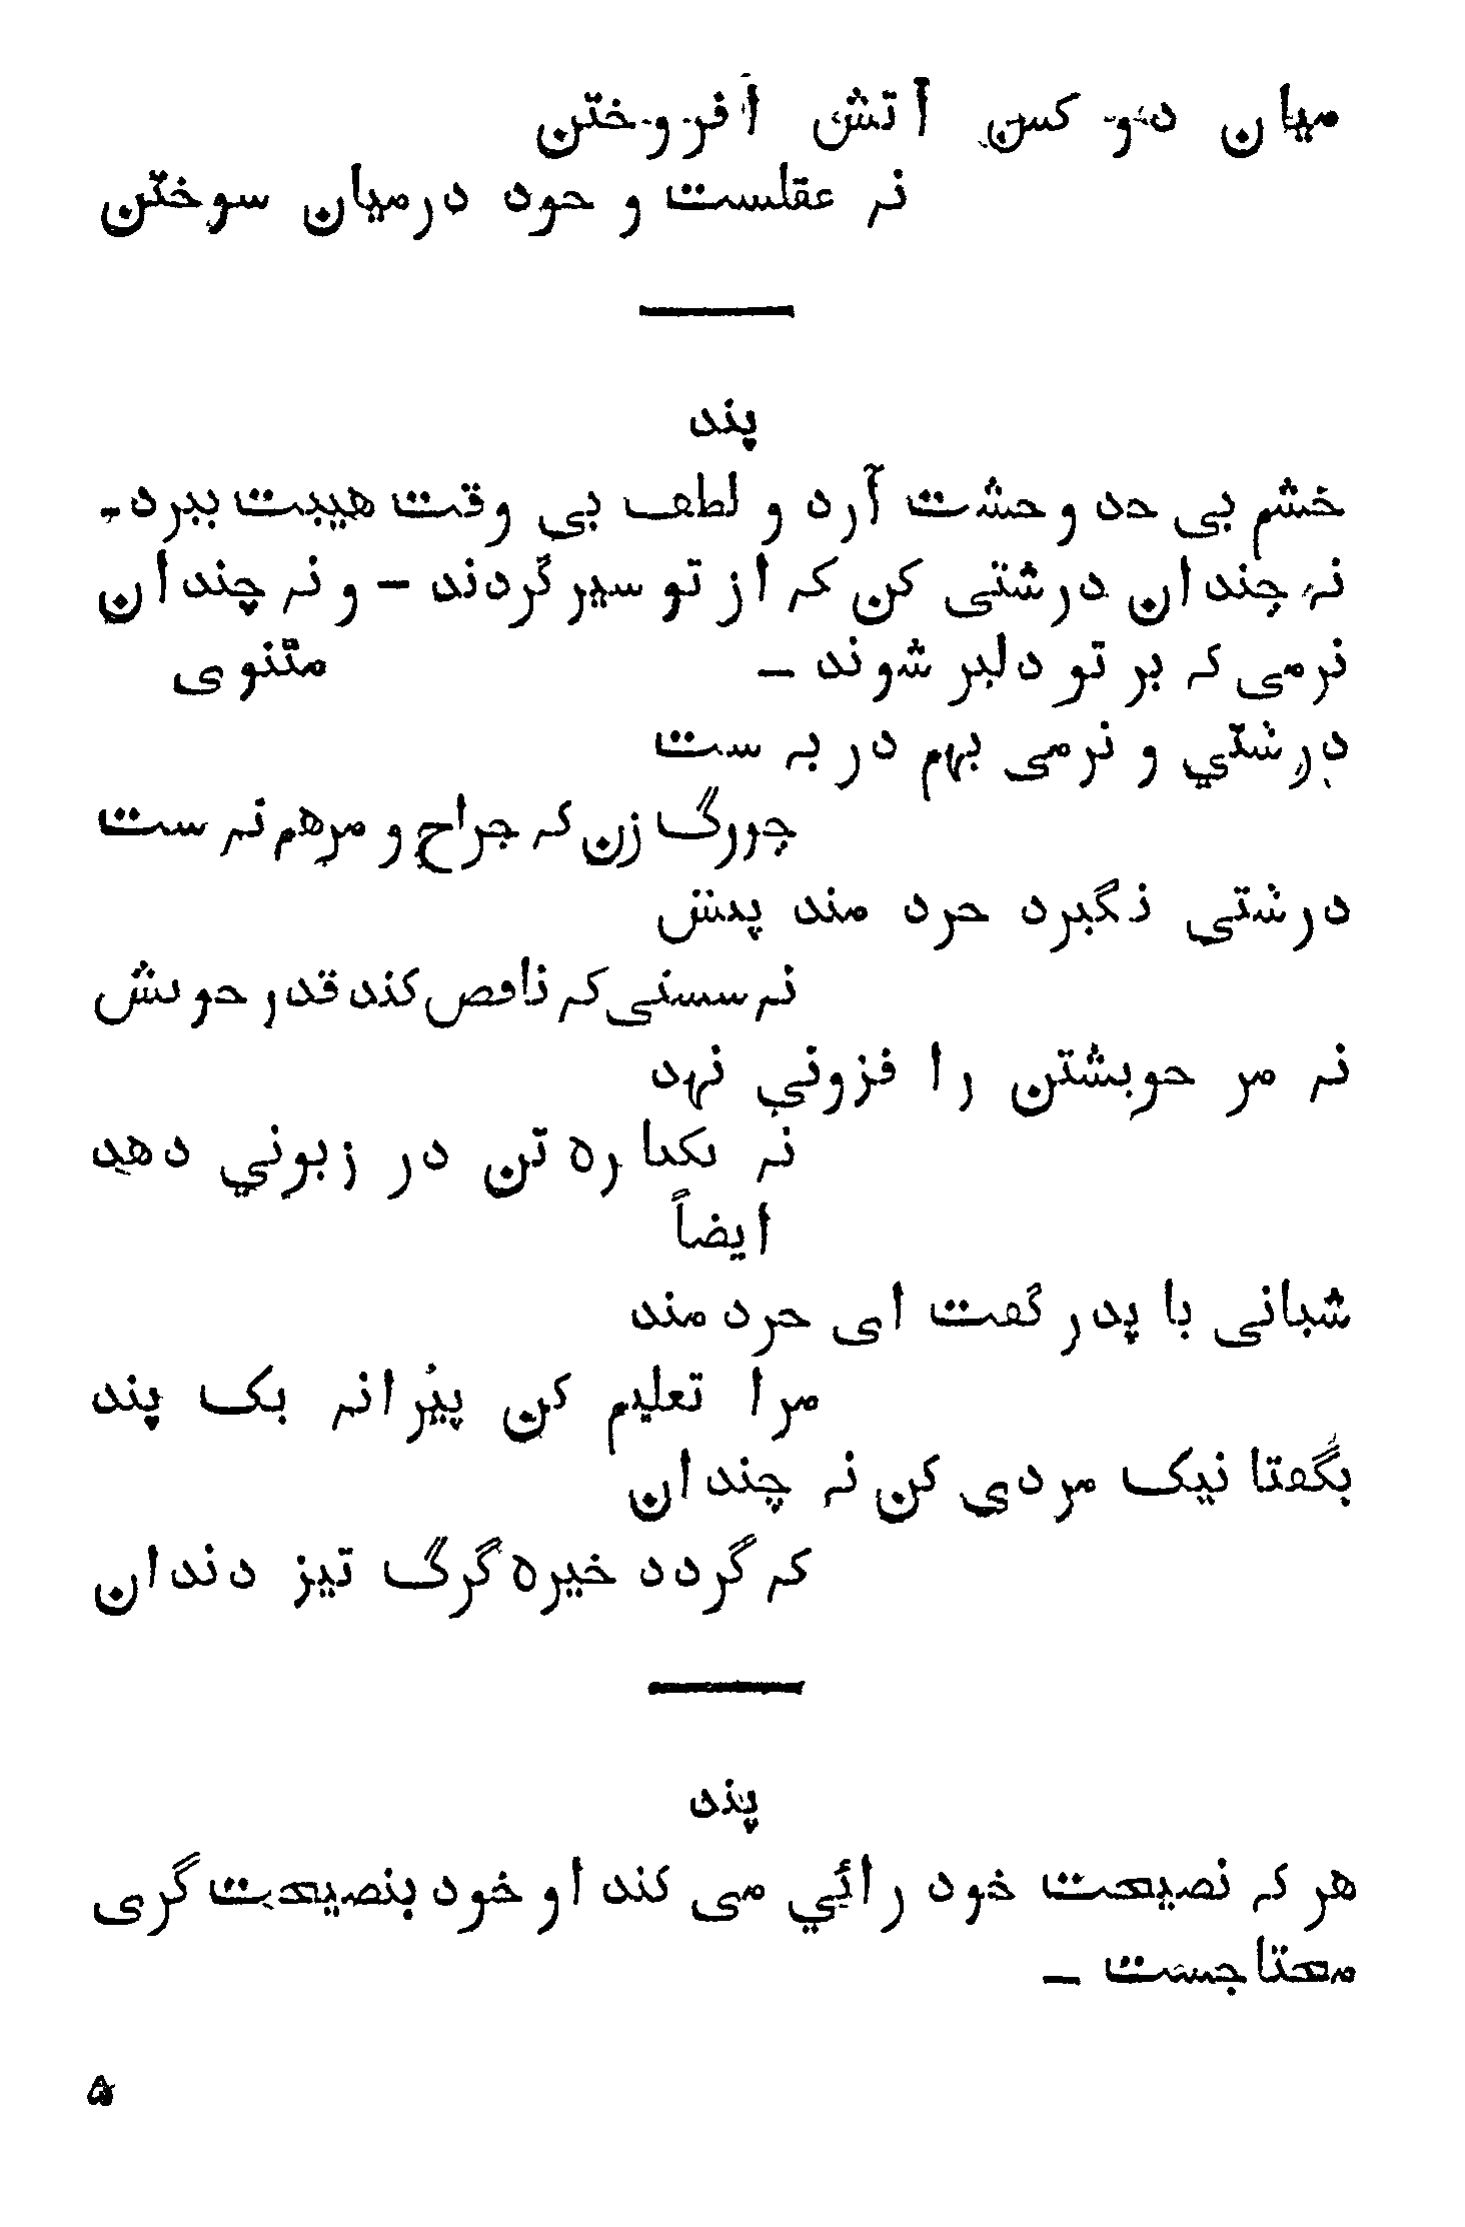 میان دو کس آتش افروختن
نہ عقلست و خود درمیان سوختن
پند
خشم بی حد وحشت آرد و لطف بی وقت هیبت ببرد ـ
نہ چندان درشتی کن کہ از تو سیر گردند ـ و نہ چندان
نرمی کہ بر تو دلیر شوند ـ مثنوی
درشتي و نرمی بہم در بہ ست
چو رگ زن کہ جراح و مرهم نہ ست
درشتی نگیرد خرد مند پیش
نہ سستی کہ ناقص کند قدر خویش
نہ مر خویشتن را فزوني نہد
نہ یکبارہ تن در زبوني دهد
ایضاً
شبانی با پدر گفت ای خرد مند
مرا تعلیم کن پیرانہ یک پند
بگفتا نیک مردی کن نہ چندان
کہ گردد خیرہ گرگ تیز دندان
پند
هر کہ نصیحت خود رائي می کند او خود بنصیحت گری
محتاجست ـ
۵